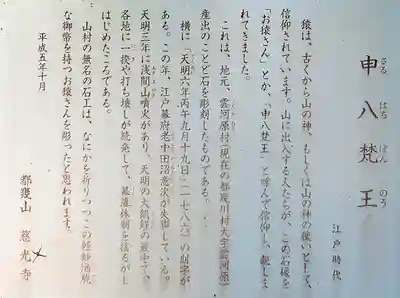 申八梵王
さる はち ぼん のう
江戸時代
猿は、古くから山の神、もしくは山の神の使いとして、
信仰されています。山に出入する人たちが、この石像を
「お猿さん」とか、「申八梵王」と呼んで信仰し、親しま
れてきました。
これは、地元、雲河原村(現在の都幾川村大字雲河原)
産出のことど石を彫刻したものである。
横に「天明六年丙午九月十九日」(一七八六)の刻字が
ある。この年、江戸幕府老中田沼意次が失脚している。
天明三年に浅間山噴火があり、天明の大飢饉の最中で、
各地に一揆や打ち壊しが続発して、幕藩体制を揺るがし
はじめたころである。
山村の無名の石工は、なにかを祈りつつこの軽妙洒脱
な御幣を持つお猿さんを彫ったと思われます。
平成五年十月
都幾山 慈光寺